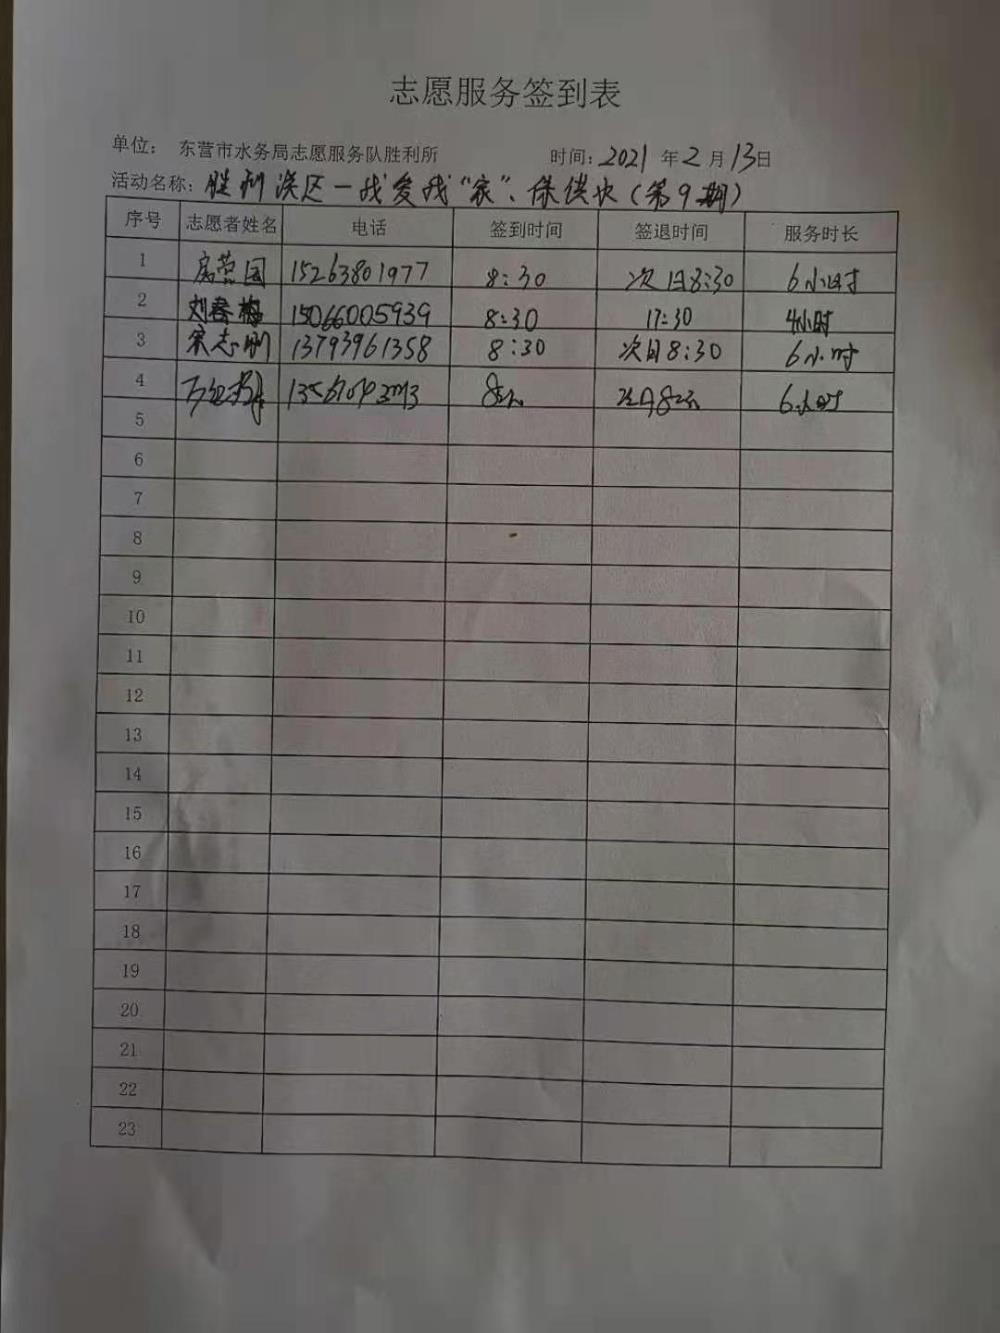 志愿服务签到表
单位： 东营市水务局志愿服务队胜利所 时间：2021 年 2 月 13 日
活动名称：胜利灌区一我爱我“家”、保供水（第9期）
序号 志愿者姓名 电话 签到时间 签退时间 服务时长
1 房营国 15263801977 8:30 次日8:30 6小时
2 刘春梅 15066005939 8:30 17:30 4小时
3 宋志刚 13793961358 8:30 次日8:30 6小时
4 6小时
5
6
7
8
9
10
11
12
13
14
15
16
17
18
19
20
21
22
23